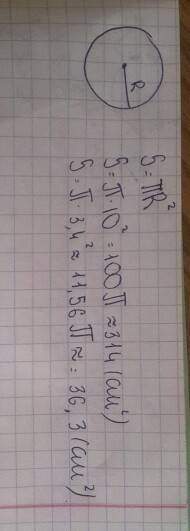 R
S = πR²
S = π·10² = 100π ≈ 314 (см²)
S = π·3,4² ≈ 11,56π ≈ = 36,3 (см²).